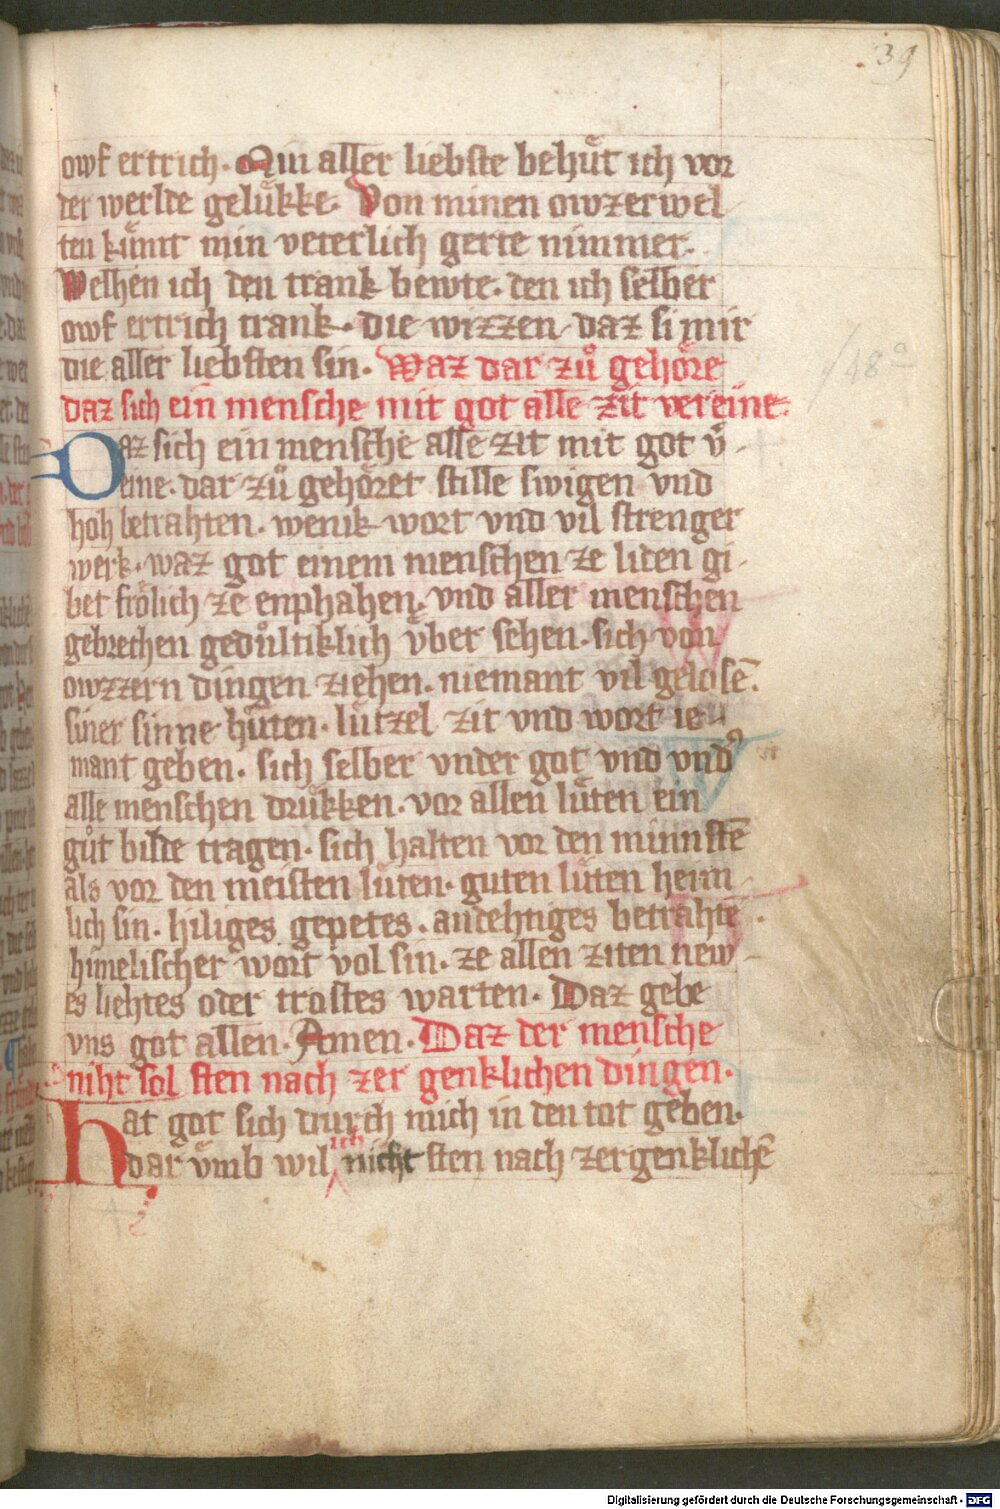 39
owf ertrich. Min aller liebste behuͤt ich vor
der werlde geluͤkke. Von minen owzerwel
ten kuͤmt min veterlich gerte nimmer.
Welhen ich den trank bewte. den ich selber
owf ertrich trank. die wizzen daz si mir
die aller liebsten sin. Waz dar zuͦ gehoͤre
daz sich ein mensche mit got alle zit vereine.
Daz sich ein mensche alle zit mit got v̄-
eine. dar zuͦ gehoͤret stille swigen vnd
hoh betrahten. wenik wort vnd vil strenger
werk. waz got einem menschen ze liden gi-
bet froͤlich ze enphahen. vnd aller menschen
gebrechen geduͦltiklich vͤber sehen. sich von
owzzern dingen ziehen. niemant vil gelosē.
siner sinne huͤten. luͤtzel zit vnd wort ie-
mant geben. sich selber vnder got vnd vnd᾽
alle menschen druͤkken. vor allen luͤten ein
guͦt bilde tragen. sich halten vor den minnstē
als vor den meisten luͤten. guten luͤten heim-
lich sin. hiliges gepetes. andehtiges betrahtē.
himelischer wort vol sin. ze allen ziten new-
es liehtes oder trostes warten. Daz gebe
vns got allen. Amen. Daz der mensche
niht sol sten nach zer genklichen dingen.
Hat got sich durch mich in den tot geben.
dar vͤmb wil ich nicht sten nach zergenklichē
148a
Digitalisierung gefördert durch die Deutsche Forschungsgemeinschaft - DFG